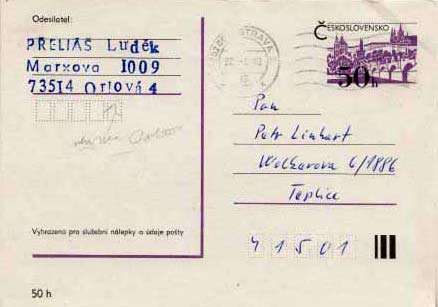 Odesílatel:
PRELIAS Luděk
Marxova 1009
73514 Orlová 4
ČESKOSLOVENSKO
50h
OSTRAVA
Pan
Petr Linhart
Wolkerova 6/1886
Teplice
41501
Vyhrazeno pro služební nálepky a údaje pošty
50 h